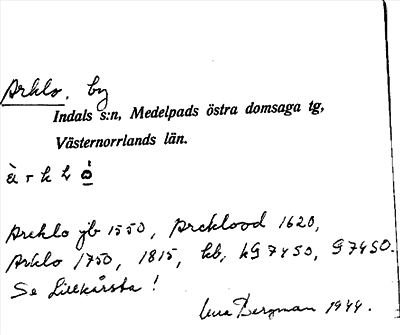 Arklo. by
Indals s:n, Medelpads östra domsaga tg,
Västernorrlands län.
Arcklo jb 1550, Arcklood 1620,
Arklo 1750, 1815, kb, kG 7450, G 7450.
Se Lillkårsta!
Bergman 1944.